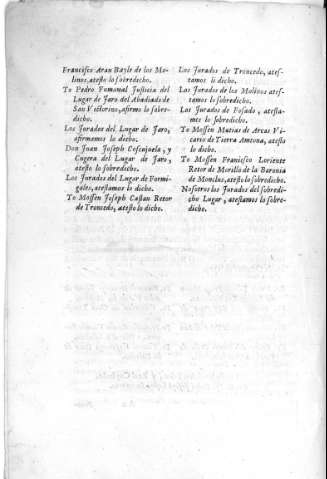 Francisco Aran Bayle de los Mo-
linos, atesto lo sobredicho.
Yo Pedro Fumanal Justicia del
Lugar de Jaro del Abadiado de
San Victorino, afirmo lo sobre-
dicho.
Los Jurados del Lugar de Jaro,
afirmamos lo dicho.
Don Juan Joseph Coscojuela, y
Cugera del Lugar de Jaro,
atesto lo sobredicho.
Los Jurados del Lugar de Formi-
gales, atestamos lo dicho.
Yo Mossen Joseph Castan Retor
de Troncedo, atesto lo dicho.
Los Jurados de Troncedo, ates-
tamos lo dicho.
Los Jurados de los Molinos ates-
tamos lo sobredicho.
Los Jurados de Posado, atesta-
mos lo sobredicho.
Yo Mossen Matias de Arcas Vi-
cario de Tierra Amtona, atesto
lo dicho.
Yo Mossen Francisco Loriente
Retor de Morillo de la Baronia
de Monclus, atesto lo sobredicho.
Nosotros los Jurados del sobredi-
cho Lugar, atestamos lo sobre-
dicho.